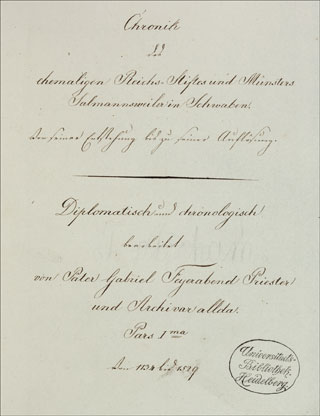 Chronik
des
ehemaligen Reichs-Stiftes und Münsters
Salmannsweiler in Schwaben.
Von seiner Entstehung bis zu seiner Auflösung.
Diplomatisch und chronologisch
bearbeitet
von Pater Gabriel Feyerabend Priester
und Archivar allda.
Pars I ma
Von 1134 bis 1529
Universitäts-
Bibliothek
Heidelberg